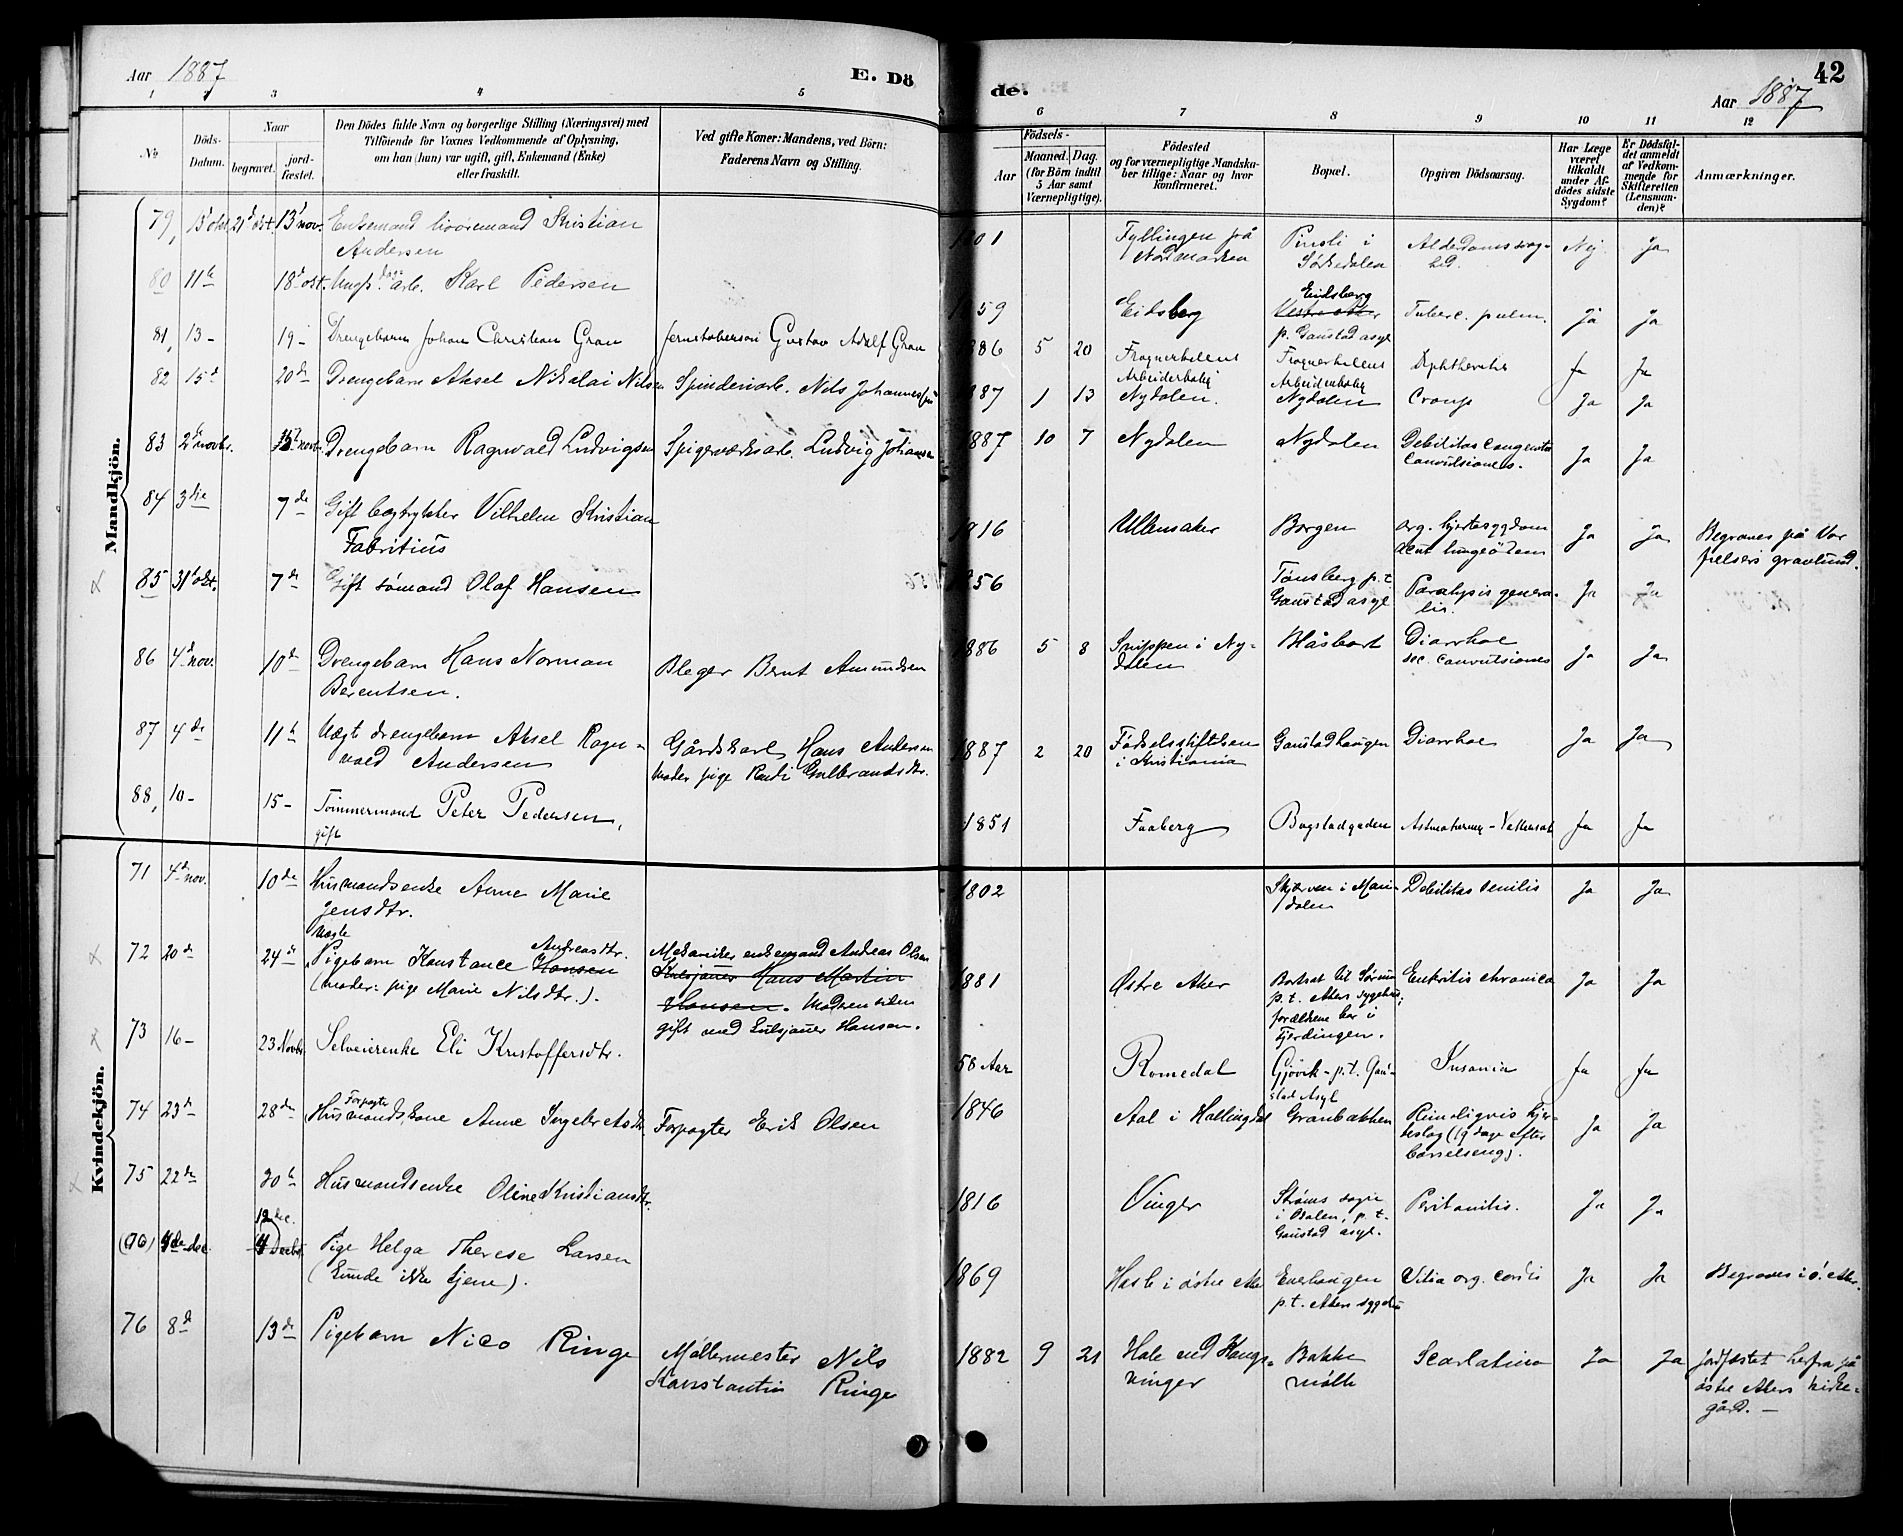 Aar 1887
E. Dö
1 2 3 4 5
No
Döds-
Datum.
Naar
begravet.
jord-
fæstet.
Den Dödes fulde Navn og borgerlige Stilling (Næringsvei) med
Tilföiende for Voxnes Vedkommende af Oplysning,
om han (hun) var ugift, gift, Enkemand (Enke)
eller fraskilt.
Ved gifte Koner: Mandens, ved Börn:
Faderens Navn og Stilling.
Mandkjön.
79, 21 okt. 13 nov. Enkemand Kristian
Andersen
80 11te 18 okt. arb. Karl Pedersen
81, 13- 19- Drengebarn Johan Christian Gran Gustav Adolf Gran
82 15d 20de Drengebarn Aksel Nikolai Nilsen Spinderiarb. Nils Johannessen
83 2 novbr. nov. Drengebarn Ragnvald Ludvigsen Spigerverksarb. Ludvig Johansen
84 3die 7de Gift bogtrykker Vilhelm Kristian
Fabritius
85 31 okt. 7de Gift sømand Olaf Hansen
86 4d nov. 10de Drengebarn Hans Norman Bleger Bernt Amundsen
Berentsen.
87 4de 11te Uægt drengebarn Aksel Ragn- Gårdskarl Hans Andersen
vald Andersen moder pige Randi Gulbrandsdtr.
88, 10- 15- Tømmermand Peter Pedersen,
gift
Kvindekjön.
71 4de nov. 10de Husmandsenke Anne Marie
Jensdtr.
Uægte
72 20de 24de Pigebarn Konstance Andreasdtr. Hansen Mekaniker enkemand Andreas Olsen
(moder: pige Marie Nilsdtr.). Hans Martin
Hansen. Moderen siden
gift med Hansen.
73 16- 23 Novbr. Selveierenke Eli Kristoffersdtr.
74 23de 28de Forpagter Husmandskone Anne Ingebretsdtr Forpagter Erik Olsen
75 22de 30te Husmandsenke Oline Kristiansdtr.
12 dec.
(76) 4de dec. Pige Helga Therese Larsen
(kunde ikke tjene).
76 8d 13de Pigebarn Nico Ringe Møllermester Nils
Konstantin Ringe
de.
42
Aar 1887
6 7 8 9 10 11 12
Födsels-
Aar
Maaned. Dag.
(for Börn indtil
5 Aar samt
Værnepligtige).
Födested
og for værnepligtige Mandska-
ber tillige: Naar og hvor
konfirmeret.
Bopæl.
Opgiven Dödsaarsag.
Har Læge
været
tilkaldt
under Af-
dödes sidste
Sygdom?
Er Dödsfal-
det anmeldt
af Vedkom-
mende for
Skifteretten
(Lensman-
den)?
Anmærkninger.
1801 Fyllingen på Pinsli i Alderdomssvag- Nej Ja
Nordmarken Sørkedalen hed.
1859 Eidsberg Eidsberg Tuberc. pulm. Ja Ja
p. Gaustad asyl
1886 5 20 Frognerkilens Frognerkilens Diphtheritis Ja Ja
Arbeiderbolig Arbeiderbolig
1887 1 13 Nydalen. Nydalen Croup Ja Ja
1887 10 7 Nydalen Nydalen Debilitas congenita Ja Ja
Convulsiones.
1816 Ullensaker Borgen org. hjertesygdom Ja Ja Begraves på Vor
acut lungeödem frelsers gravlund.
1856 Tønsberg p.t. Paralysis genera- Ja Ja
Gaustad asyl lis.
1886 5 8 Snippen i Ny- Blåsbort Diarrhoe Ja Ja
dalen sec. convulsiones
1887 2 20 Fødselsstiftelsen Gaustadhaugen Diarrhoe Ja Ja
i Kristiania
1851 Faaberg Bogstadgaden Ja Ja
1802 Skjærven i Mari- Debilitas senilis Ja Ja
dalen
1881 Østre Aker Bortsat til Sørum Enteritis chronica Ja Ja
p.t. Akers sygehus;
forældrene bor i
Fjerdingen.
58 Aar Romedal Gjøvik - p.t. Gau- Insania Ja Ja
stad Asyl
1846 Aal i Hallingdal Granbakken Rimeligvis hjer- Ja Ja
teslag (19 dage efter
barselseng).
1816 Vinger Strøms sogn Peritonitis. Ja Ja
i Odalen, p.t.
Gaustad asyl.
1869 Hasle i østre Aker Enerhaugen Vitia org. cordis Ja Ja Begraves i ø. Aker.
p.t. Akers sygehus
1882 9 21 Hole ved Kongs- Bakke Scarlatina Ja Ja Jordfæstet herfra på
vinger mølle østre Akers kirke-
gård. -